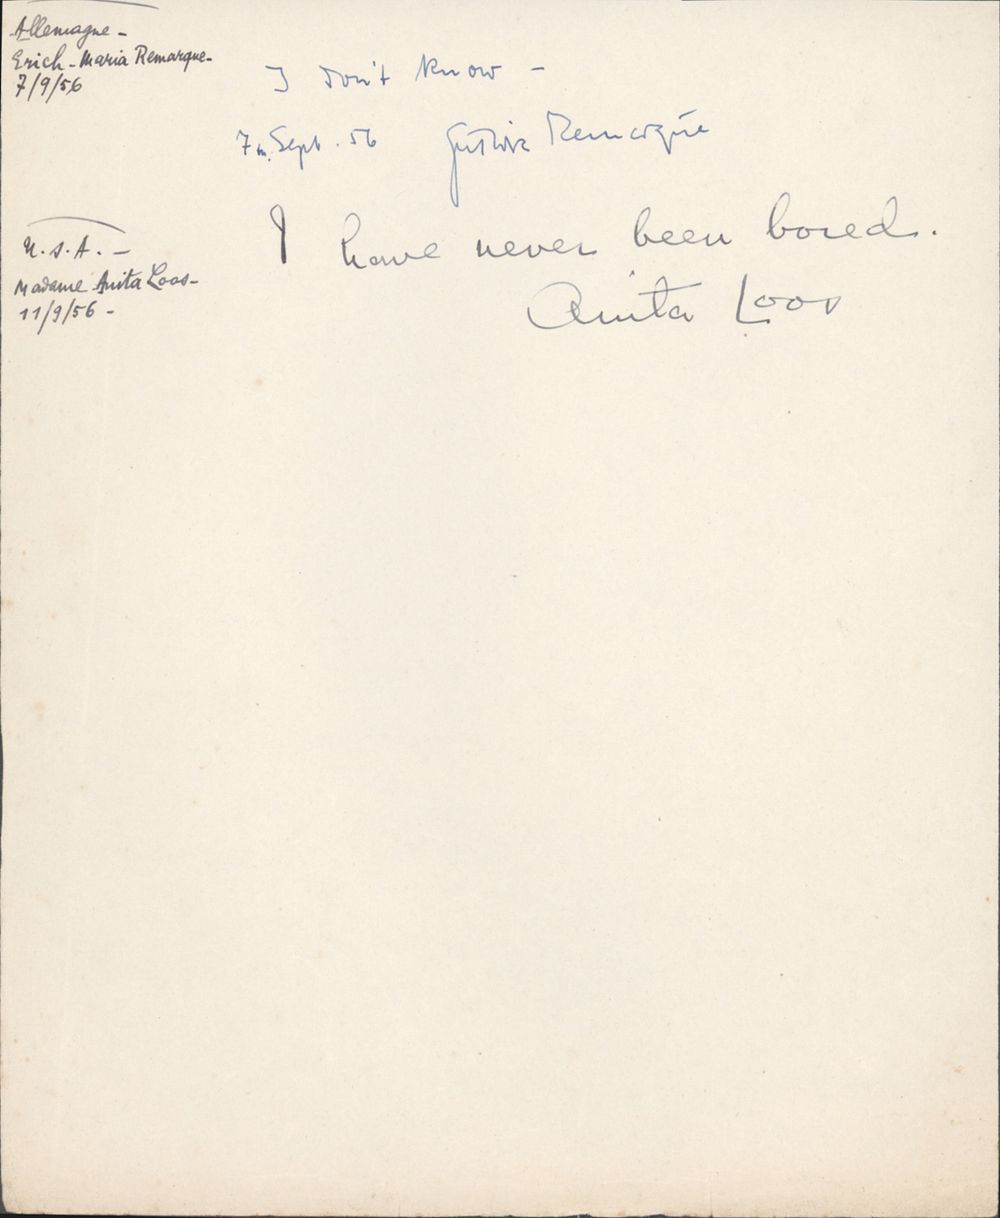 Allemagne -
Erich-Maria Remarque-
7/9/56
I don't know -
7 Sept. 56 Remarque
U.S.A. -
Madame Anita Loos-
11/9/56 -
I have never been bored.
Anita Loos